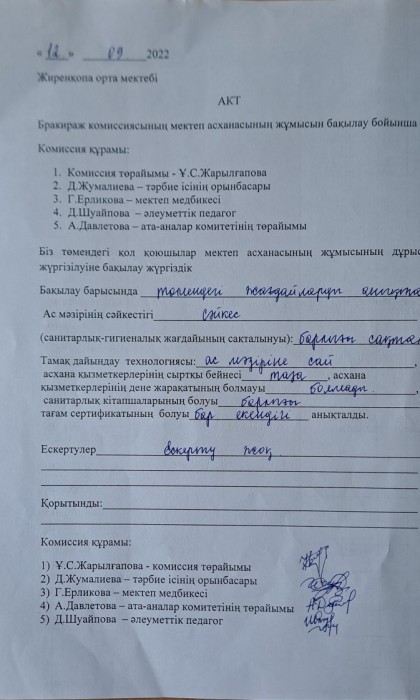 « 12 » 09 2022
Жиренкопа орта мектебі
АКТ
Бракираж комиссиясының мектеп асханасының жұмысын бақылау бойынша
Комиссия құрамы:
1. Комиссия төрайымы - Ұ.С.Жарылғапова
2. Д.Жумалиева – тәрбие ісінің орынбасары
3. Г.Ерликова – мектеп медбикесі
4. Д.Шуайпова – әлеуметтік педагог
5. А.Давлетова – ата-аналар комитетінің төрайымы
Біз төмендегі қол қоюшылар мектеп асханасының жұмысының дұрыс
жүргізілуіне бақылау жүргіздік
Бақылау барысында төмендегі жағдайларды анықта
Ас мәзірінің сәйкестігі сәйкес
(санитарлық-гигиеналық жағдайының сақталунуы): барлығы сақтал
Тамақ дайындау технологиясы: ас мәзіріне сай ,
асхана қызметкерлерінің сыртқы бейнесі таза , асхана
қызметкерлерінің дене жарақатының болмауы болмады .
санитарлық кітапшаларының болуы барлығы
тағам сертификатының болуы бар екендігі анықталды.
Ескертулер ескерту жоқ
Қорытынды:
Комиссия құрамы:
1) Ұ.С.Жарылғапова - комиссия төрайымы
2) Д.Жумалиева – тәрбие ісінің орынбасары
3) Г.Ерликова – мектеп медбикесі
4) А.Давлетова – ата-аналар комитетінің төрайымы
5) Д.Шуайпова – әлеуметтік педагог